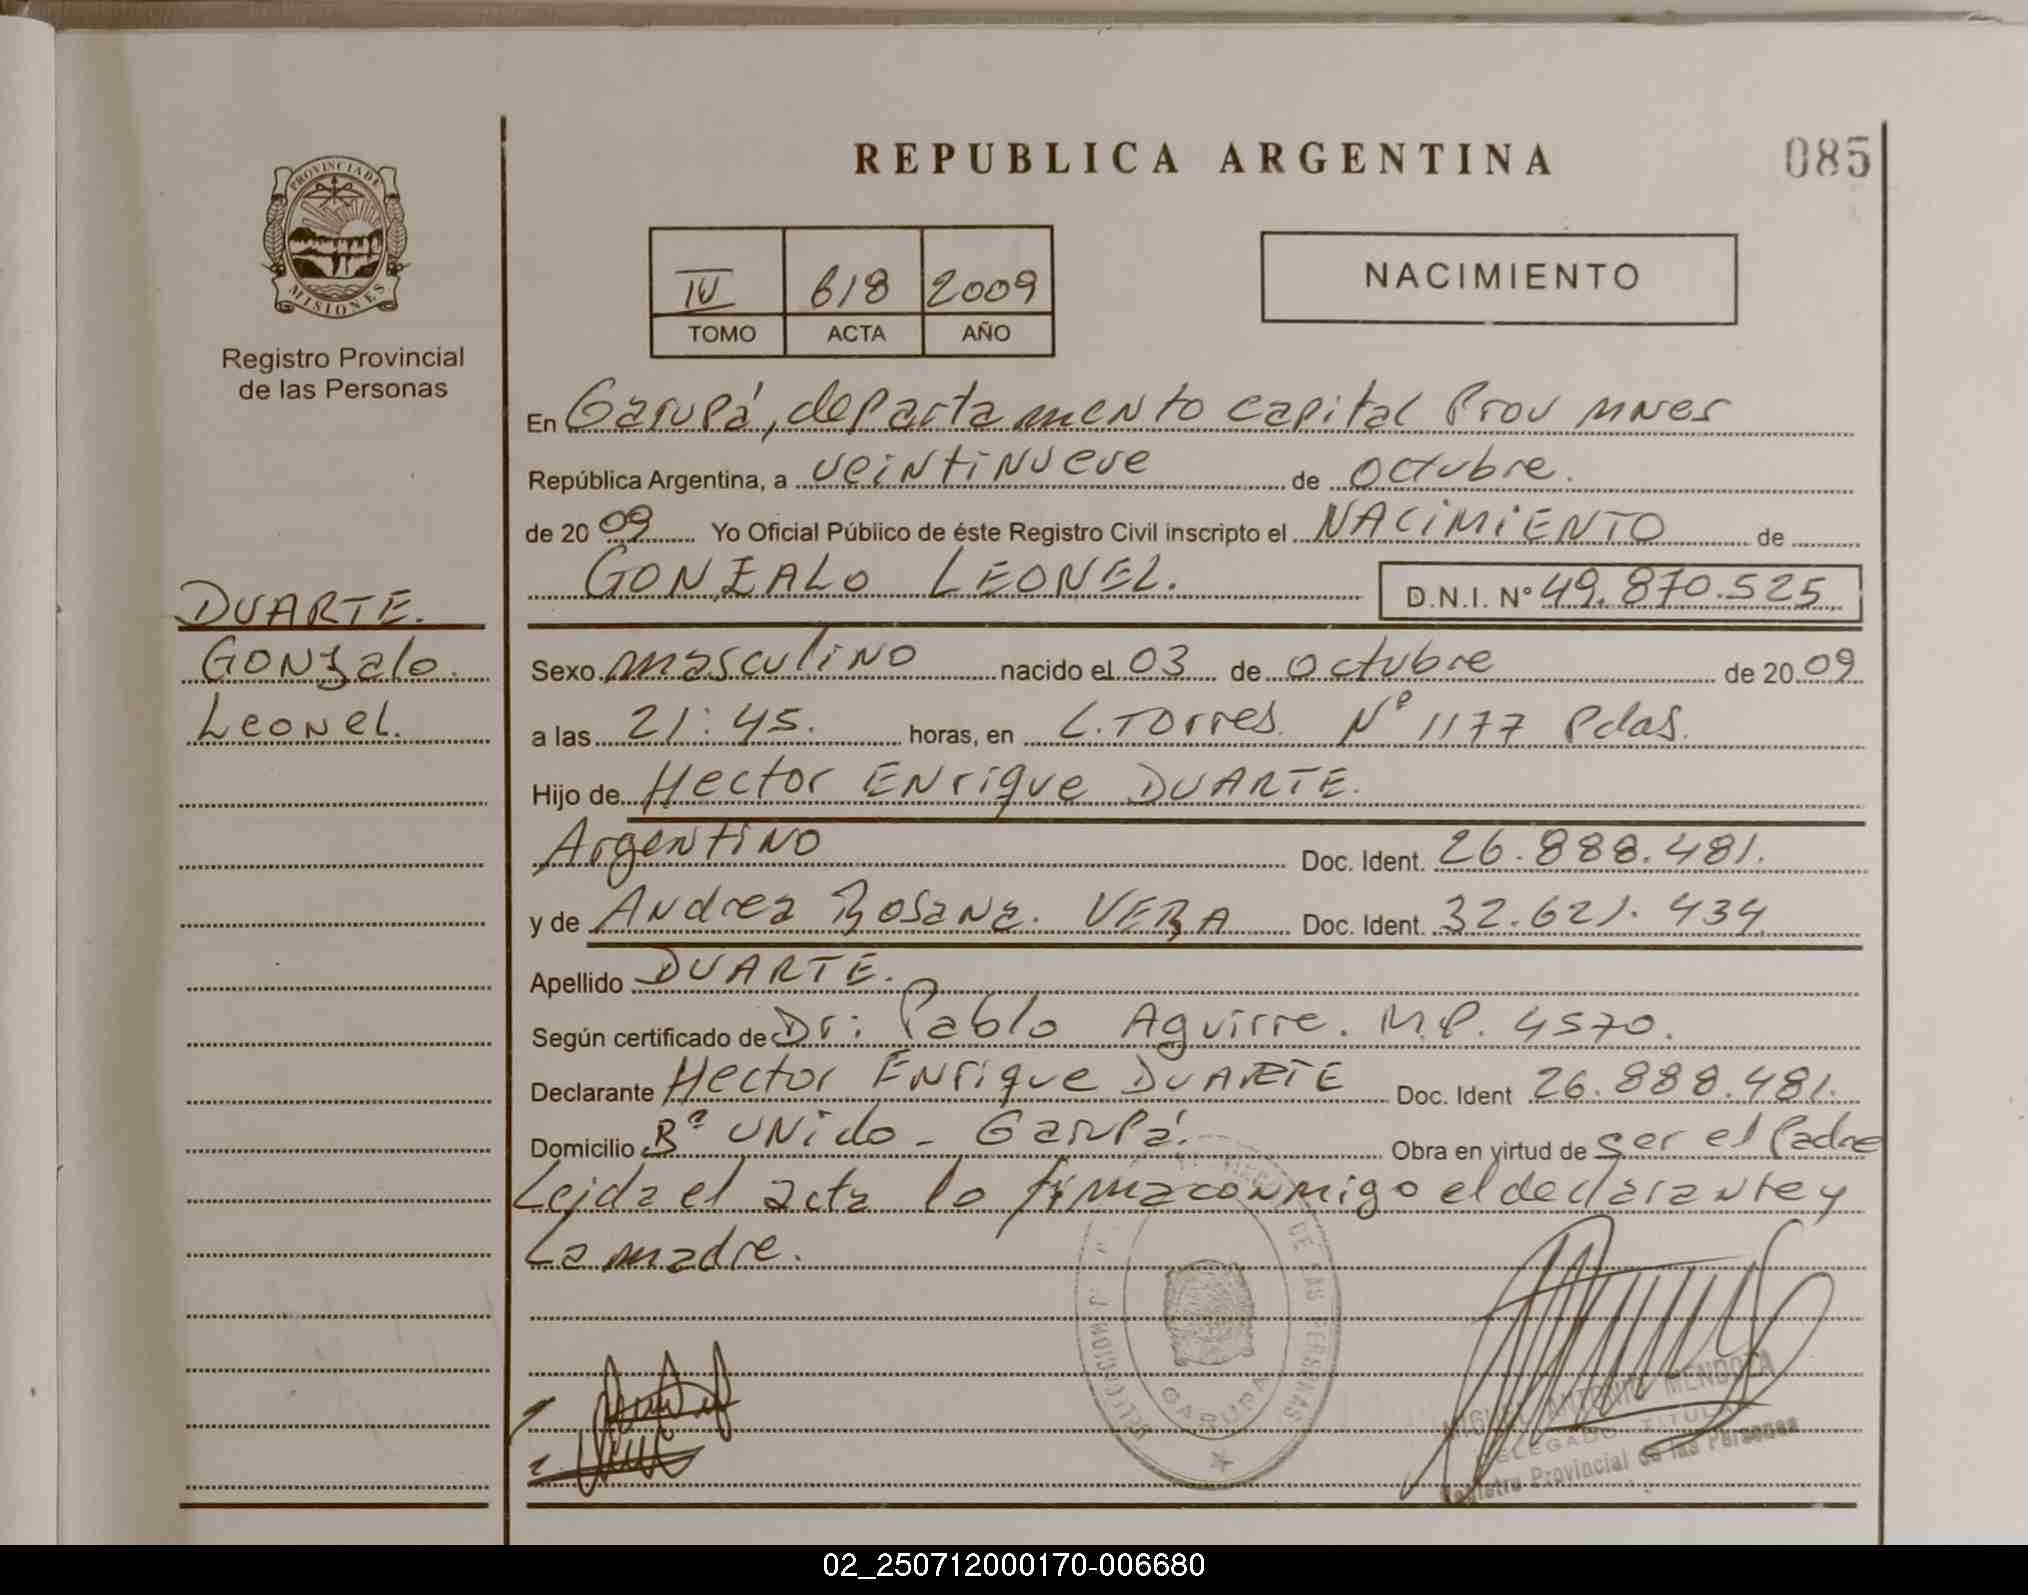 REPUBLICA ARGENTINA
085
PROVINCIA DE
MISIONES
Registro Provincial
de las Personas
IV 618 2009
TOMO ACTA AÑO
NACIMIENTO
En Garupá, departamento capital Prov Mnes
República Argentina, a veintinueve de octubre.
de 2009 Yo Oficial Público de éste Registro Civil inscripto el NACIMIENTO de
GONZALO LEONEL. D.N.I. N° 49.870.525
DUARTE.
Gonzalo.
Leonel.
Sexo masculino nacido el 03 de octubre de 2009
a las 21:45. horas, en L. Torres. N° 1177 Pdas.
Hijo de Hector Enrique DUARTE.
Argentino Doc. Ident. 26.888.481.
y de Andrea Rosana. VERA Doc. Ident. 32.621.434
Apellido DUARTE.
Según certificado de Dr: Pablo Aguirre. M.P. 4570.
Declarante Hector Enrique DUARTE Doc. Ident 26.888.481.
Domicilio Bº Unido - Garupá. Obra en virtud de ser el Padre
Leida el acta lo firma conmigo el declarante y
La madre.
DE LAS PERSONAS
GARUPA
MIGUEL ANTONIO MENDOZA
DELEGADO TITULAR
Registro Provincial de las Personas
02_250712000170-006680